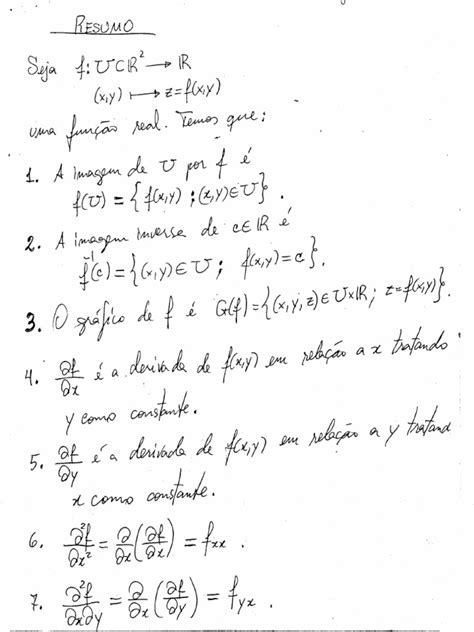 RESUMO
Seja f: U⊂ℝ² → ℝ
(x,y) ↦ z=f(x,y)
uma função real. Temos que:
1. A imagem de U por f é
f(U) = {f(x,y) ; (x,y)∈U}.
2. A imagem inversa de c∈ℝ é
f⁻¹(c) = {(x,y)∈U ; f(x,y)=c}.
3. O gráfico de f é G(f)={(x,y,z)∈U×ℝ; z=f(x,y)}.
4. ∂f/∂x é a derivada de f(x,y) em relação a x tratando
y como constante.
5. ∂f/∂y é a derivada de f(x,y) em relação a y tratand
x como constante.
6. ∂²f/∂x² = ∂/∂x (∂f/∂x) = fxx .
7. ∂²f/∂x∂y = ∂/∂x (∂f/∂y) = fyx .